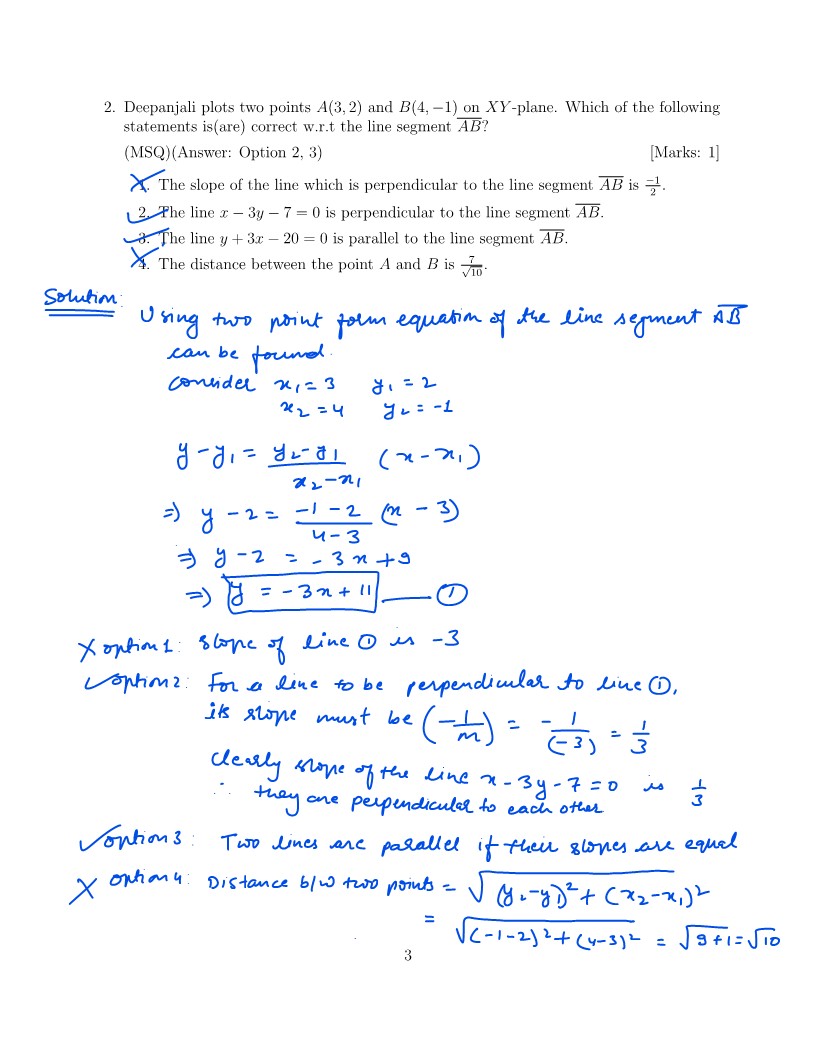 2. Deepanjali plots two points A(3, 2) and B(4, −1) on XY-plane. Which of the following
statements is(are) correct w.r.t the line segment A̅B̅?
(MSQ)(Answer: Option 2, 3) [Marks: 1]
1. The slope of the line which is perpendicular to the line segment A̅B̅ is −1/2.
2. The line x − 3y − 7 = 0 is perpendicular to the line segment A̅B̅.
3. The line y + 3x − 20 = 0 is parallel to the line segment A̅B̅.
4. The distance between the point A and B is 7/√10.
Solution:
Using two point form equation of the line segment A̅B̅
can be found.
Consider x₁ = 3 y₁ = 2
x₂ = 4 y₂ = -1
y - y₁ = (y₂ - y₁)/(x₂ - x₁) (x - x₁)
⇒ y - 2 = (-1 - 2)/(4 - 3) (x - 3)
⇒ y - 2 = -3x + 9
⇒ y = -3x + 11 —— ①
✗ option 1: slope of line ① is -3
✓ option 2: For a line to be perpendicular to line ①,
its slope must be (-1/m) = -1/(-3) = 1/3
Clearly slope of the line x - 3y - 7 = 0 is 1/3
∴ they are perpendicular to each other
✓ option 3: Two lines are parallel if their slopes are equal
✗ option 4: Distance b/w two points = √((y₂ - y₁)² + (x₂ - x₁)²
= √((-1-2)² + (4-3)²) = √(9+1) = √10
3